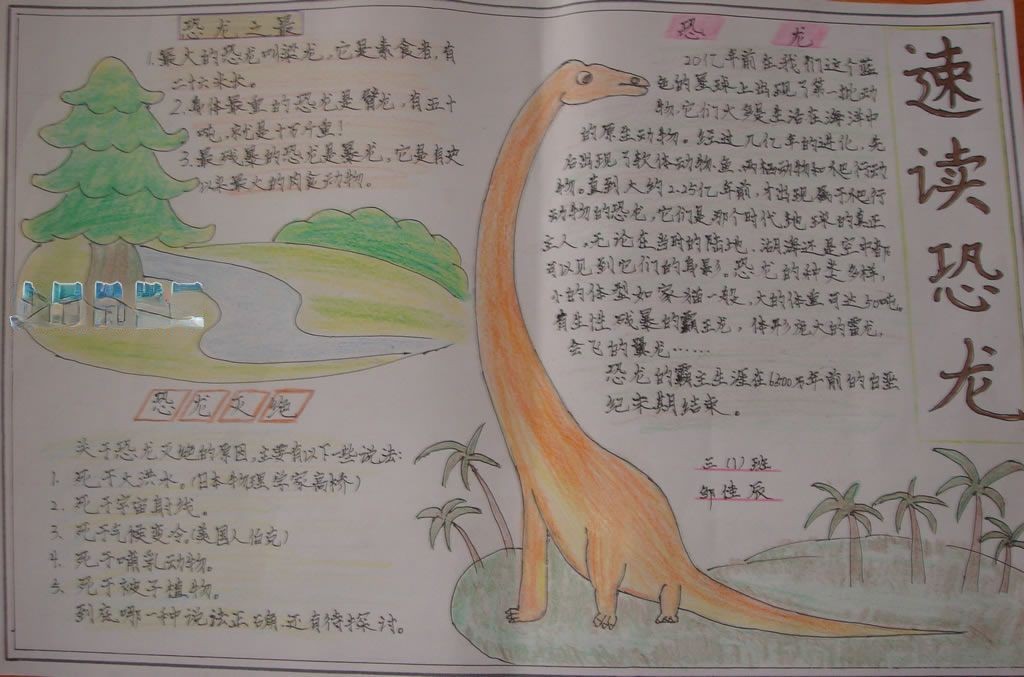 恐龙之最
1.最大的恐龙叫梁龙,它是素食者,有
二十六米长。
2.身体最重的恐龙是臂龙,有五十
吨,就是十万斤重!
3.最残暴的恐龙是暴龙,它是有史
以来最大的肉食动物。
恐龙灭绝
关于恐龙灭绝的原因,主要有以下一些说法:
1. 死于大洪水。(日本物理学家高桥)
2. 死于宇宙射线。
3. 死于气候变冷。(美国人伯克)
4. 死于哺乳动物。
5. 死于被子植物。
到底哪一种说法正确,还有待探讨。
恐 龙
20亿年前在我们这个蓝
色的星球上出现了第一批动
物,它们大多是生活在海洋中
的原生动物。经过几亿年的进化,先
后出现了软体动物、鱼、两栖动物和爬行动
物。直到大约2.25亿年前,才出现属于爬行
动物的恐龙,它们是那个时代地球的真正
主人,无论在当时的陆地、湖海还是空中都
可以见到它们的身影。恐龙的种类多样,
小的体型如家猫一般,大的体重可达50吨。
有生性残暴的霸王龙,体形庞大的雷龙,
会飞的翼龙……
恐龙的霸主生涯在6500万年前的白垩
纪末期结束。
三(1)班
邹佳辰
速读恐龙